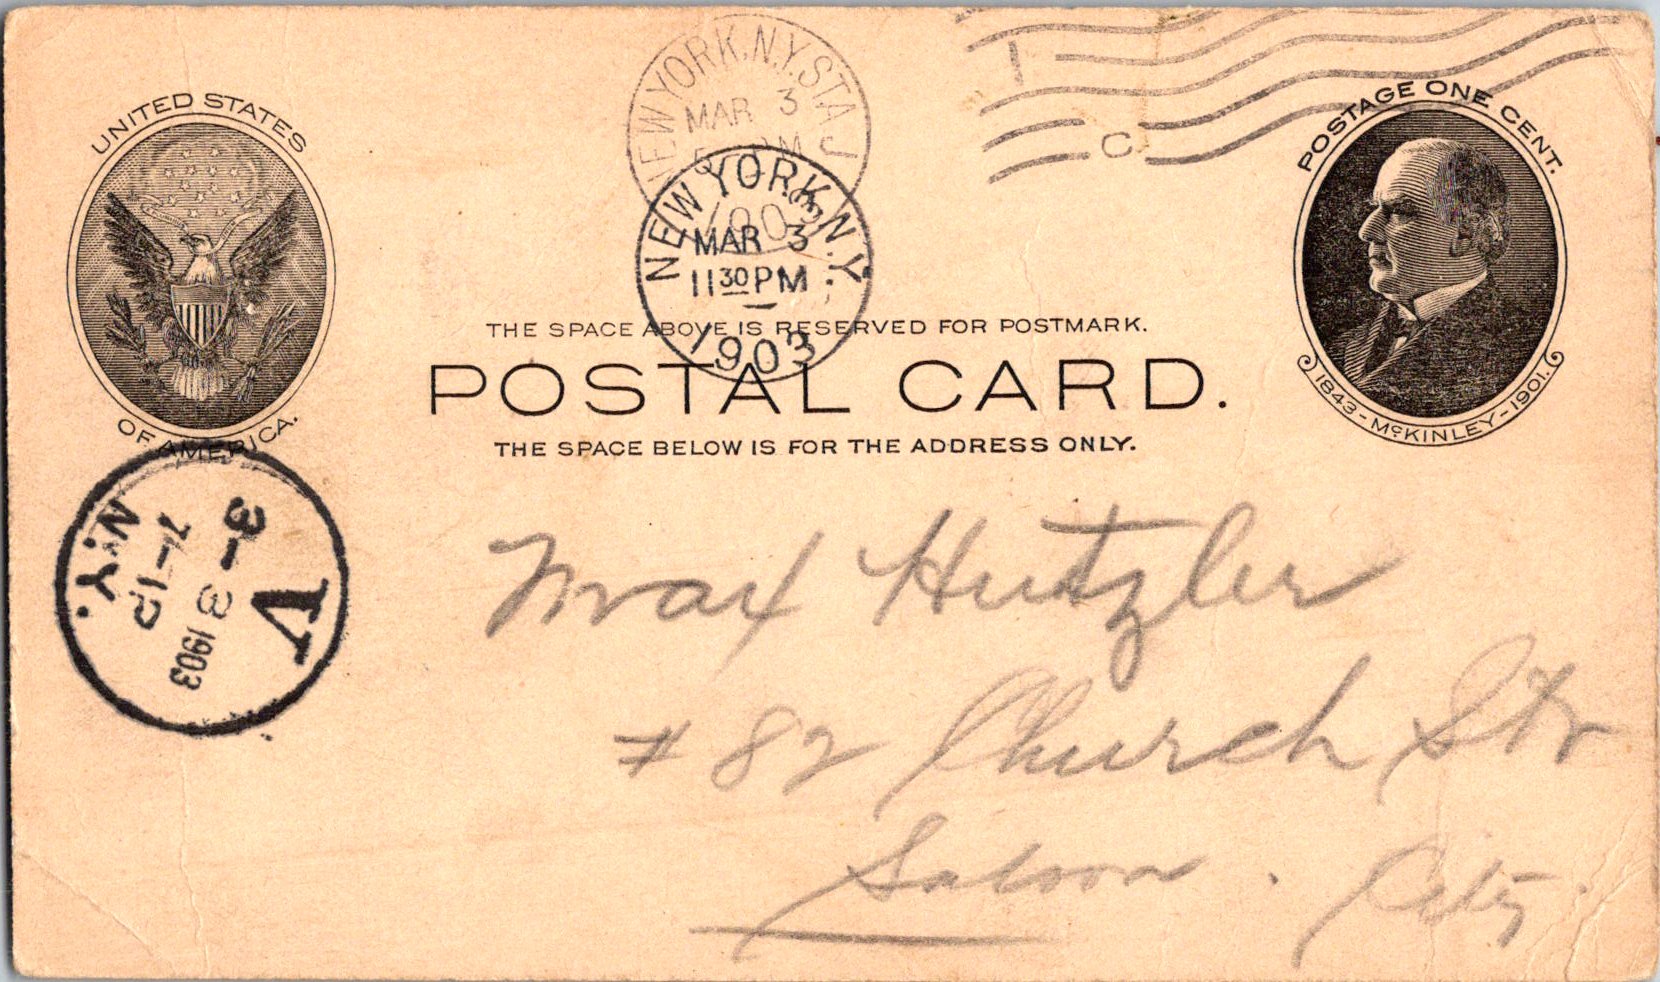 NEW YORK, N.Y. STA J
MAR 3
UNITED STATES
OF AMERICA.
POSTAGE ONE CENT.
1843 - McKINLEY - 1901.
C
NEW YORK, N.Y.
MAR 3
11 30 PM
1903
THE SPACE ABOVE IS RESERVED FOR POSTMARK.
POSTAL CARD.
THE SPACE BELOW IS FOR THE ADDRESS ONLY.
N.Y.
7-1P
3-3 1903
V
Max Hutzler
# 82 Church Str
Saloon. City.